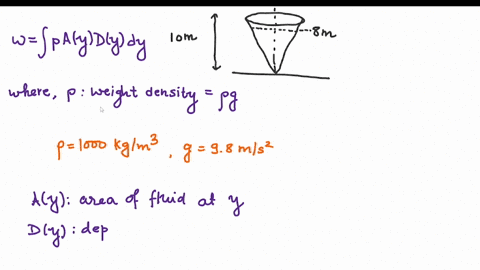 w = ∫ p A(y) D(y) dy
10m
8m
where, p : weight density = ρg
ρ = 1000 kg/m³ , g = 9.8 m/s²
A(y): area of fluid at y
D(y): dep